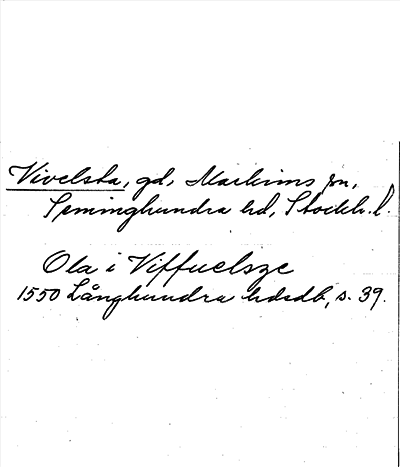 Vivelsta, gd, Markims sn,
Semminghundra hd, Stockh. l.
Ola i Viffuelsze
1550 Långhundra hdsdb, s. 39.